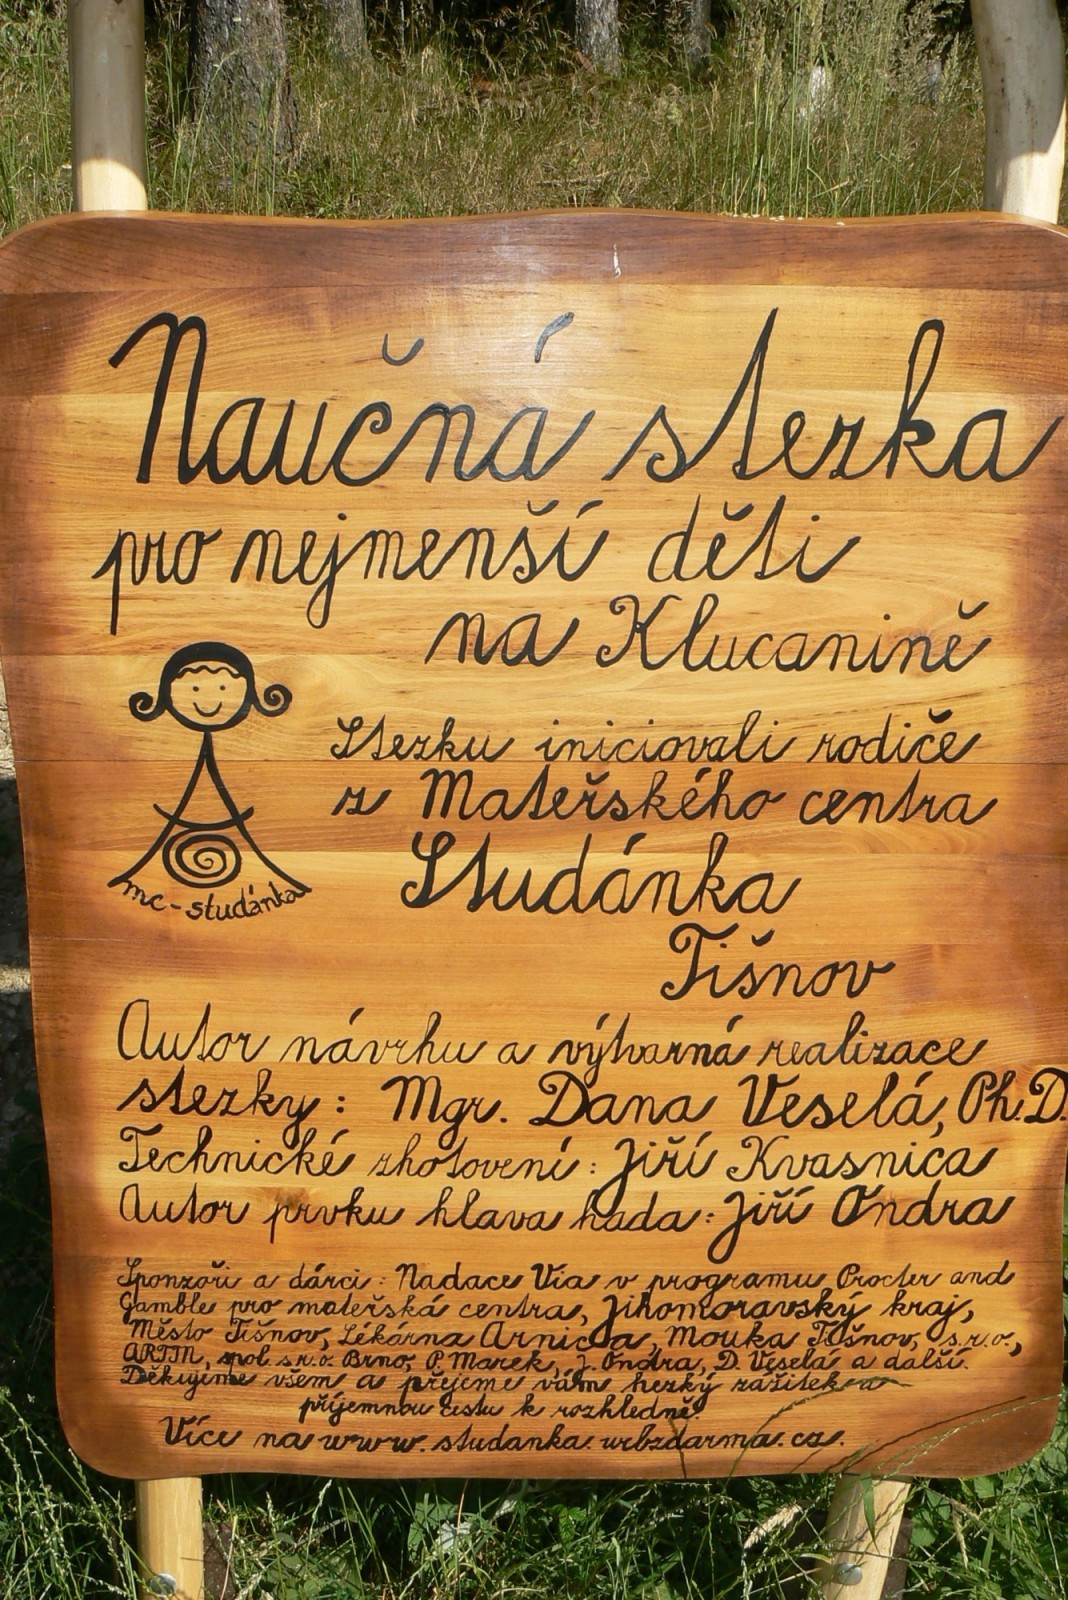 Naučná stezka
pro nejmenší děti
na Klucanině
Stezku iniciovali rodiče
z Mateřského centra
Studánka
Tišnov
mc-studánka
Autor návrhu a výtvarná realizace
stezky: Mgr. Dana Veselá, Ph.D.
Technické zhotovení: Jiří Kvasnica
Autor prvku hlava hada: Jiří Ondra
Sponzoři a dárci: Nadace Via v programu Procter and
Gamble pro mateřská centra, Jihomoravský kraj,
Město Tišnov, Lékárna Arnica, Mouka Tišnov, s.r.o.,
ARTIN, spol. s.r.o. Brno, P. Marek, J. Ondra, D. Veselá a další.
Děkujeme všem a přejeme vám hezký zážitek a
příjemnou cestu k rozhledně.
Více na www.studanka.webzdarma.cz.